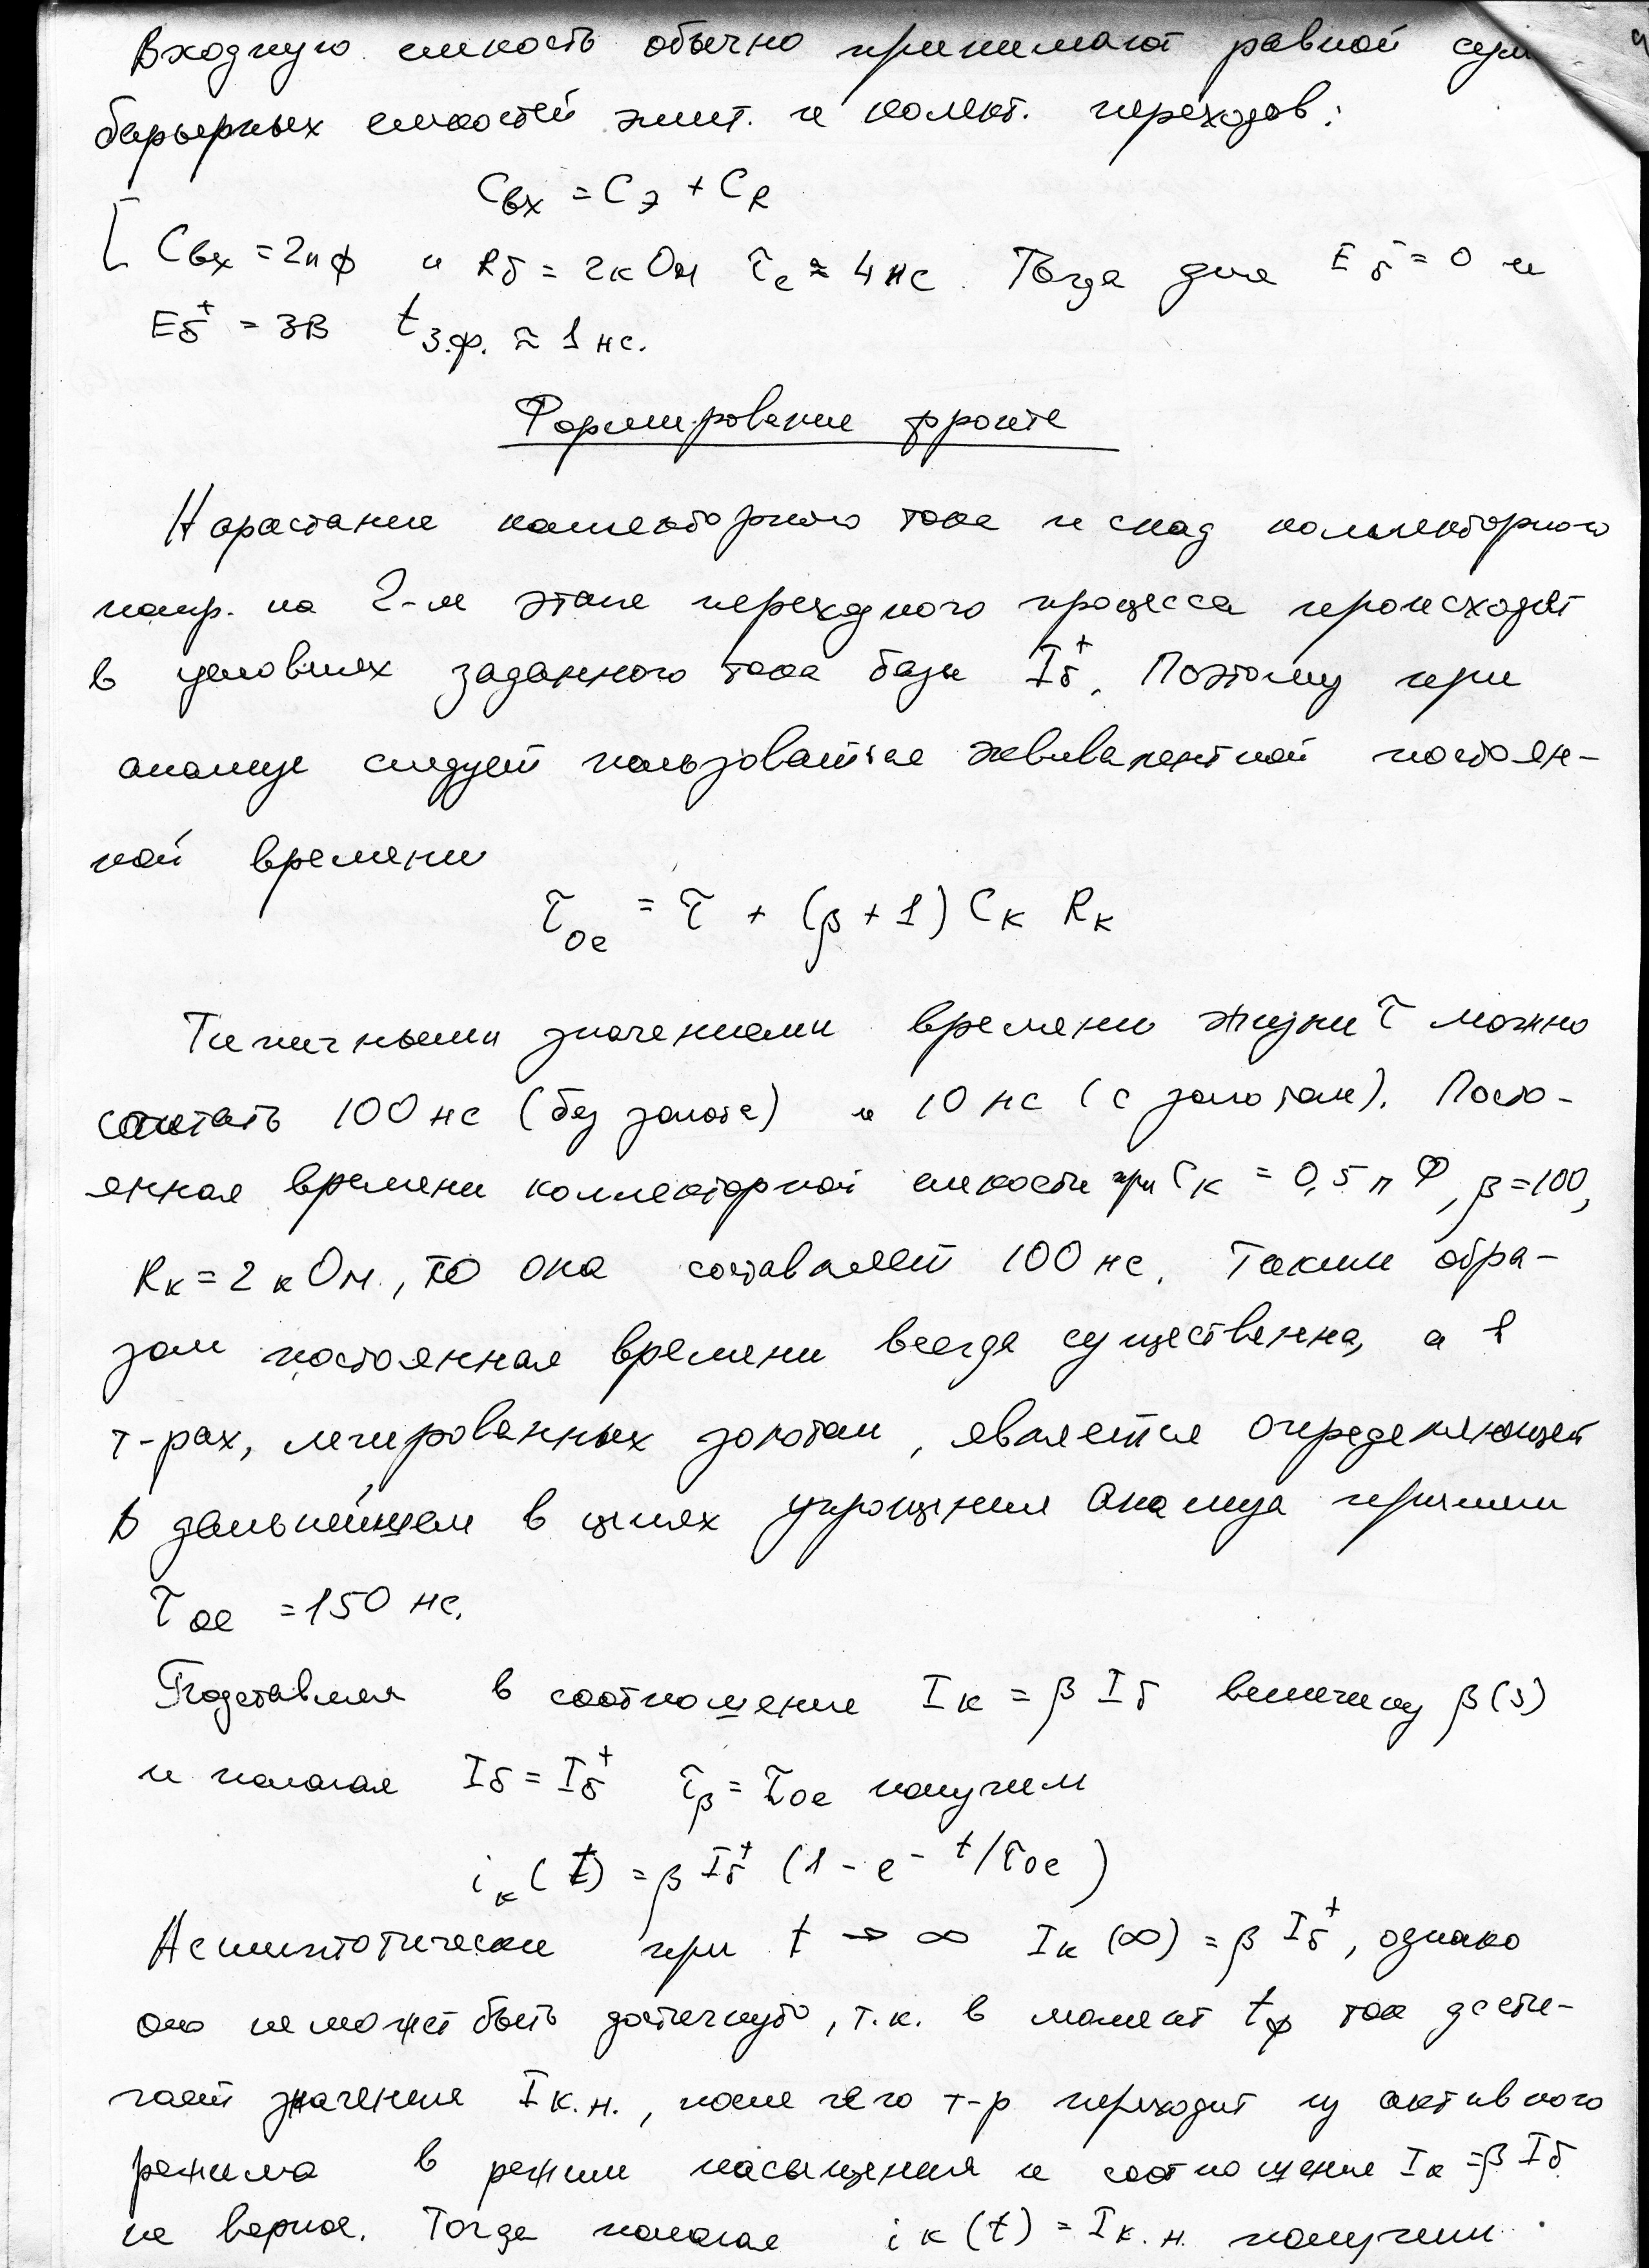 Входную емкость обычно принимают равной сум
барьерных емкостей эмит. и колект. переходов:
Cвх = Cэ + Cк
[ Cвх = 2пф и Rб = 2кОм τc ≈ 4нс. Тогда для Eб⁻ = 0 и
Eб⁺ = 3В tз.ф. ≈ 1нс.
Формирование фронта
Нарастание коллекторного тока и спад коллекторного
напр. на 2-м этапе переходного процесса происходят
в условиях заданного тока базы Iб⁺. Поэтому при
анализе следует пользоваться эквивалентной постоян-
ной времени
τое = τ + (β + 1) Cк Rк
Типичными значениями времени жизни τ можно
считать 100 нс (без золота) и 10 нс (с золотом). Посто-
янная времени коллекторной емкости при Cк = 0,5 пФ, β=100,
Rк = 2 кОм, то она составляет 100 нс. Таким обра-
зом постоянная времени всегда существенна, а в
т-рах, легированных золотом, является определяющей
В дальнейшем в целях упрощения анализа примем
τое = 150 нс.
Подставляя в соотношение Iк = β Iб величину β(s)
и полагая Iб = Iб⁺ τβ = τое получим
iк(t) = β Iб⁺ (1 - e^(- t/τое))
Асимптотически при t → ∞ Iк(∞) = β Iб⁺, однако
оно не может быть достигнуто, т.к. в момент tф ток дости-
гает значения Iк.н., после чего т-р переходит из активного
режима в режим насыщения и соотношение Iк = β Iб
не верное. Тогда полагая iк(t) = Iк.н. получим